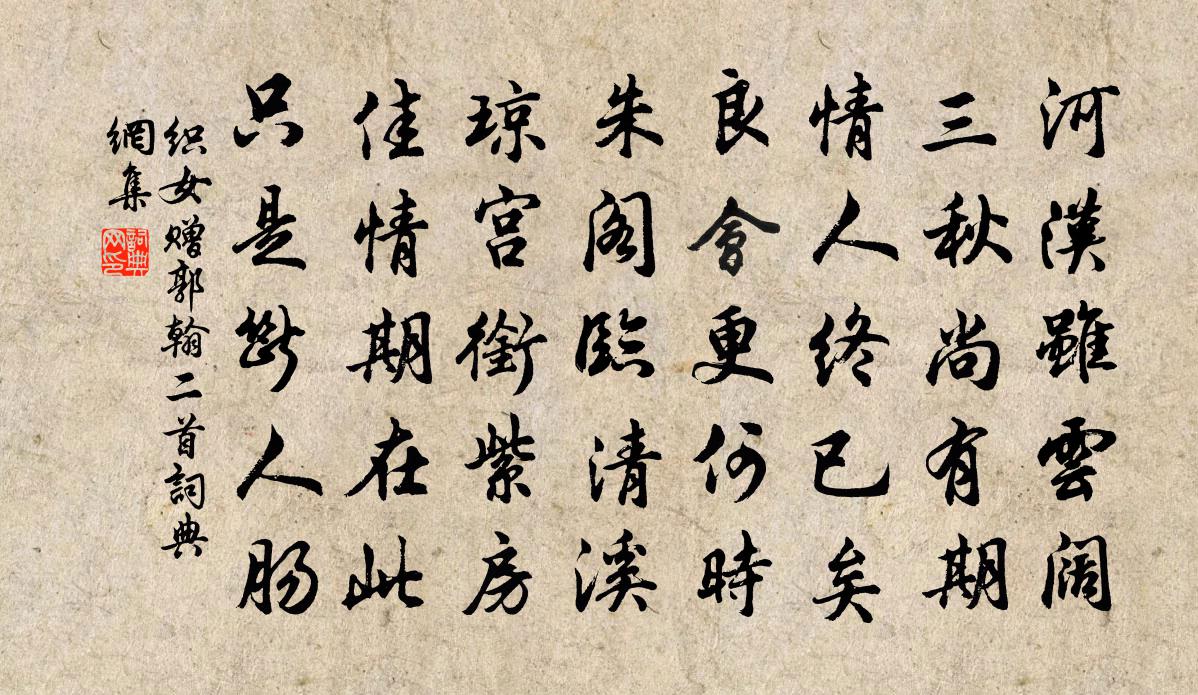 河漢雖雲闊
三秋尚有期
情人终已矣
良會更何時
朱阁臨清溪
琼宫銜紫房
佳情期在此
只是斷人肠
织女赠郭翰二首詞典
網集
詞典
网印